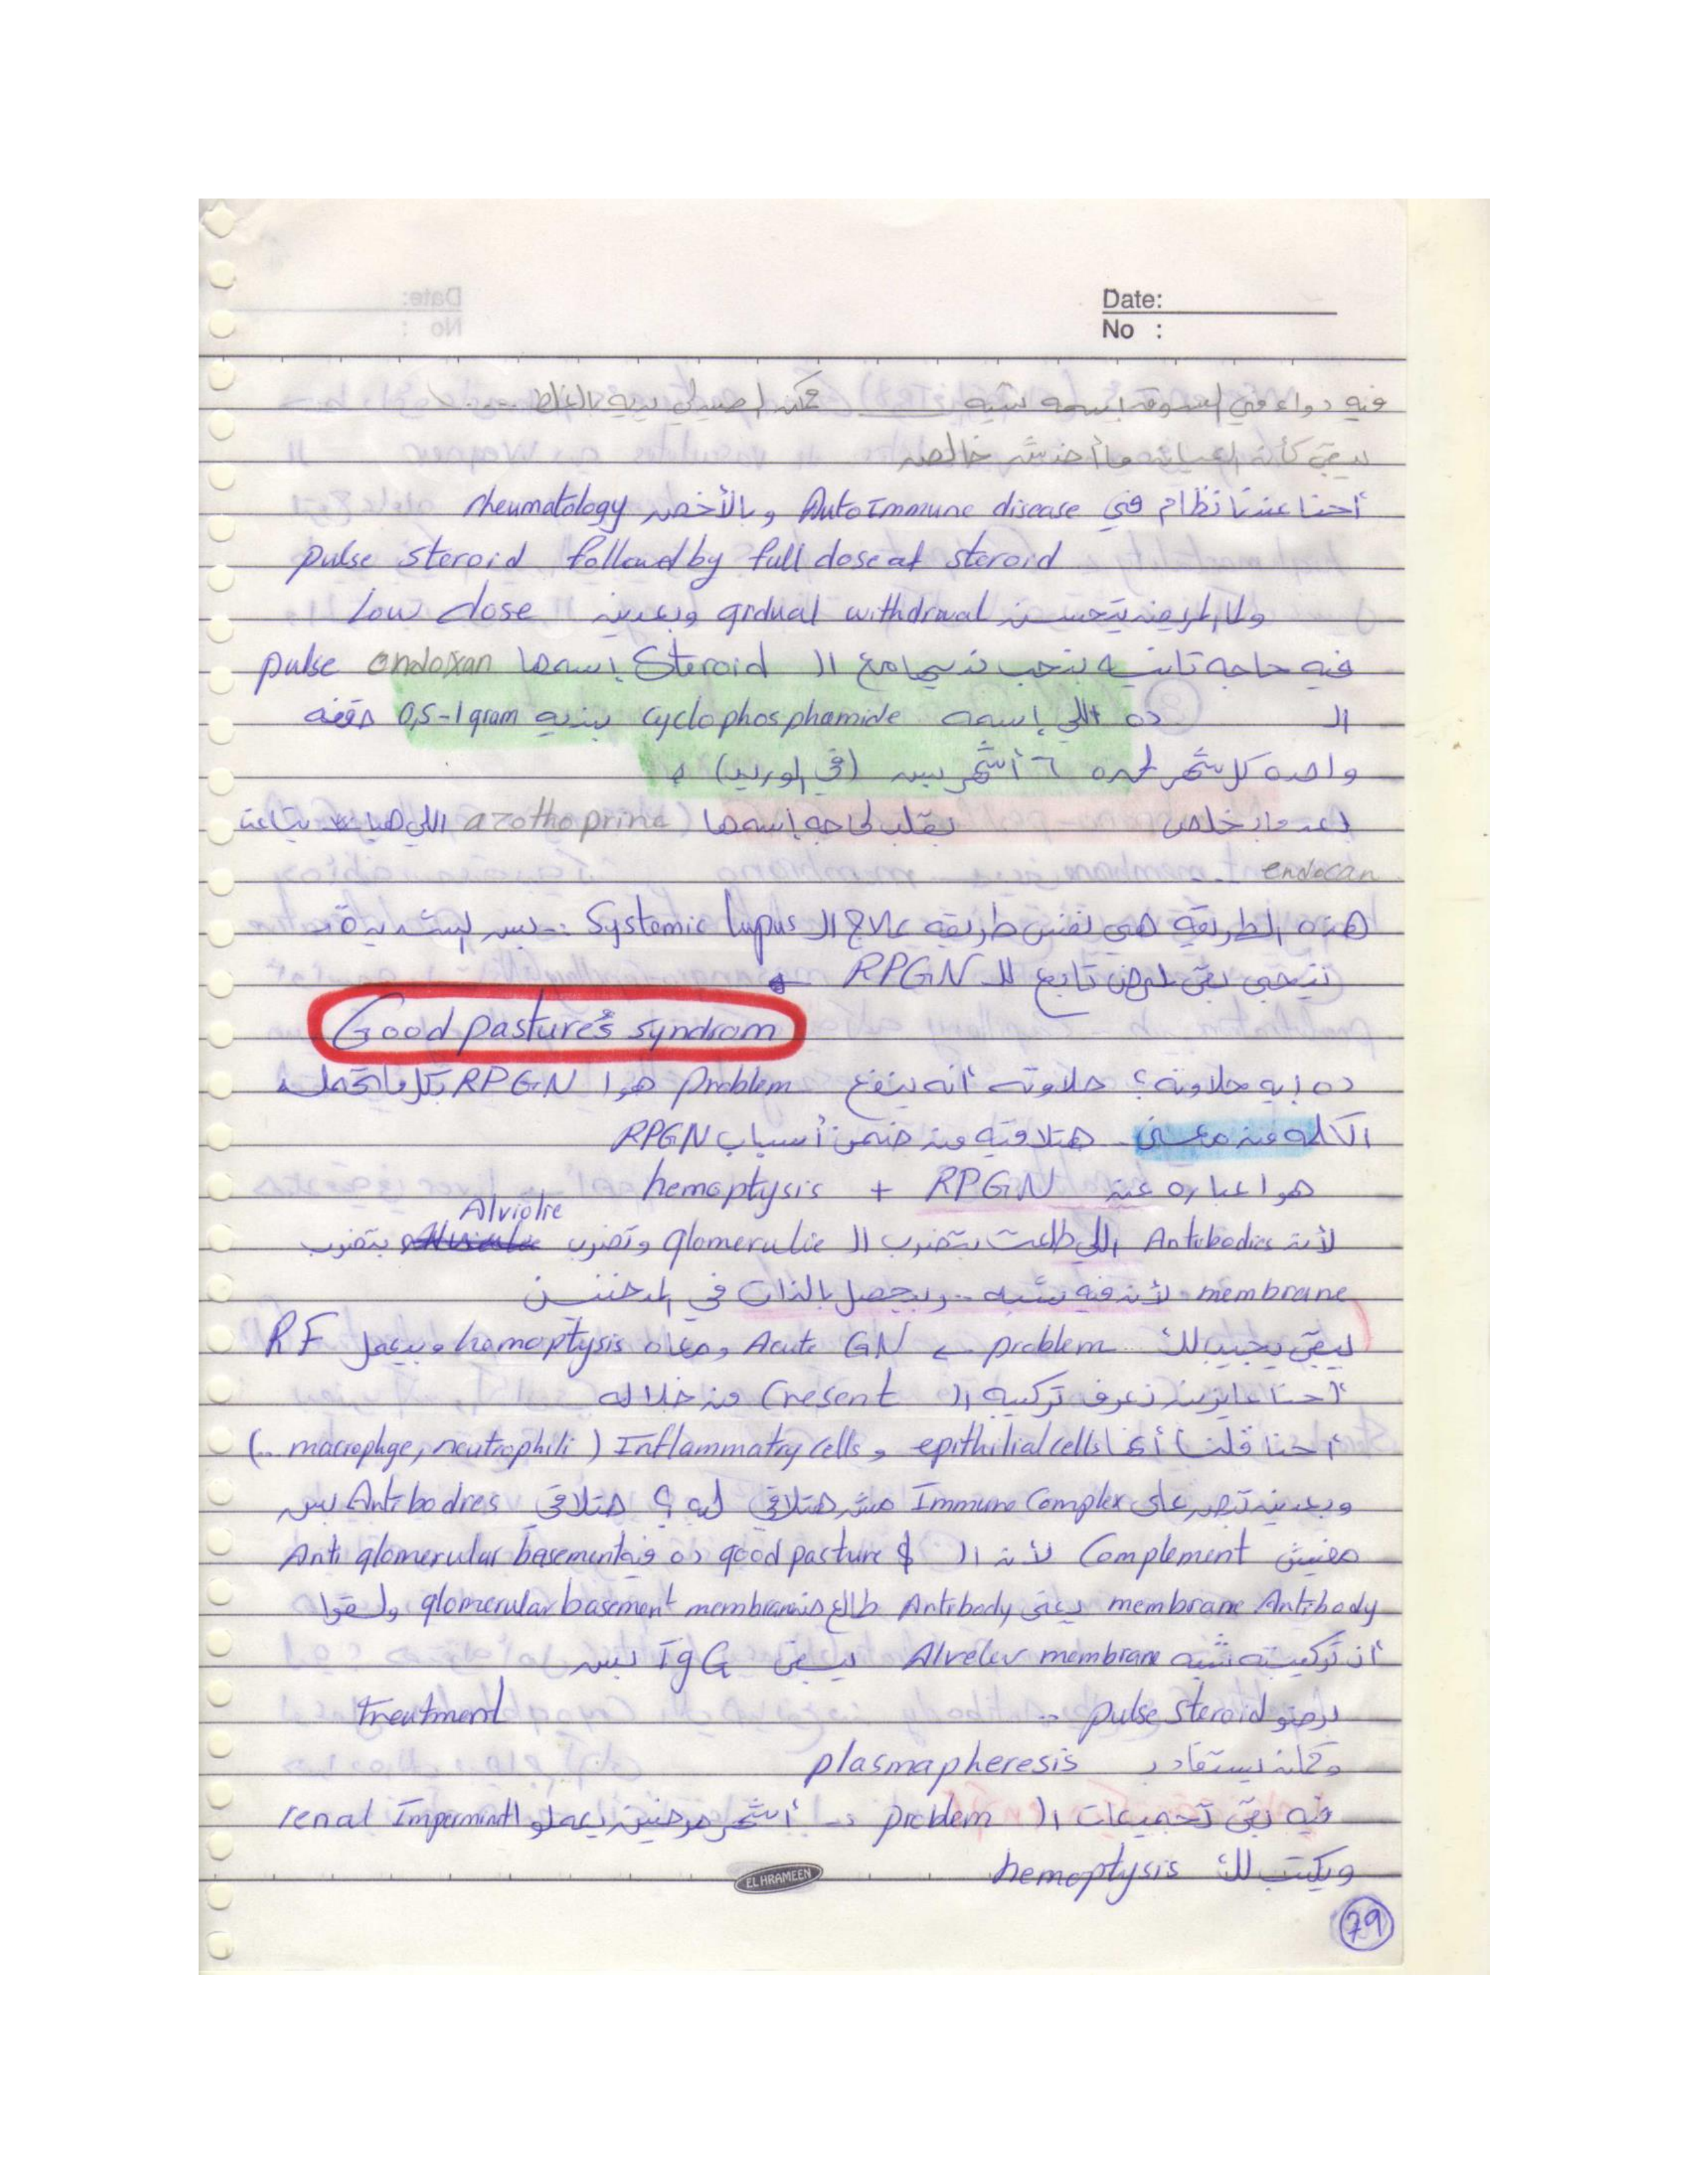 Date:
No :
فيه دواء في السوق اسمه شبيه ـــــــ ممكن الصيدلي يديه بالغلط ......
يبقى كأن العيان ما أخدش خالص
أحنا عندنا نظام في AutoImmune disease وبالأخص rheumatology
pulse steroid followed by full dose of steroid
ولما المريض يتحسن grdual withdrwal وبعدين Low dose
فيه حاجه تانيه بنحب نديها مع الـ Steroid إسمها pulse endoxan
الـ ده اللي إسمه cyclophosphamide بنديه 0,5-1 gram حقنه
واحده كل شهر لمده ٦ أشهر بس (في الوريد)
بعد ما نخلص نقلب لحاجه إسمها azothoprine اللي هيا بتاعة
endocan
هذه الطريقة هي نفس طريقه علاج الـ Systemic lupus .. بس الشديدة
نيجي بقى لمرض تابع للـ RPGN
Good pasture's syndrom
ده إيه حلاوته؟ حلاوته أنه ينفع problem هوا RPGN بكل ما تحمله
الكلمه من معنى هتلاقيه من ضمن أسباب RPGN
هوا عباره عن RPGN + hemoptysis
Alviolie
لأن Antibodies اللي طلعت بتضرب الـ glomerulie وتضرب بتضرب
membrane لأن فيه شبه .. وبيحصل بالذات في المدخنين
يبقى يجيب لك problem ← Acute GN ومعاه hemoptysis وبيعمل RF
أحنا عايزين نعرف تركيبه الـ Cresent من خلاله
أحنا قلنا أنها epithilial cells و Inflammatry cells ( macrophge, neutrophili ..)
وبعدين تبص على Immune Complex مش هتلاقي ليه ؟ هتلاقي Antibodies بس
مفيش Complement لأن الـ good pasture $ ده فيه Anti glomerular basement
membrane Antibody يعني Antibody طالع ضد glomerular basement membrane ولقوا
أن تركيبته شبه Alveler membrane يبقى IgG بس
برضو pulse steroid .. treatment
وكان يستفاد بـ plasmapheresis
فيه بقى تجميعات الـ problem .. أشهر مرضين يعملوا renal Imperment
ويكتب لك hemoptysis
EL HRAMEEN
79